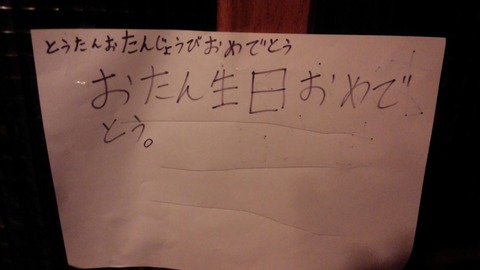 とうたんおたんじょうびおめでとう
おたん生日おめで
とう。